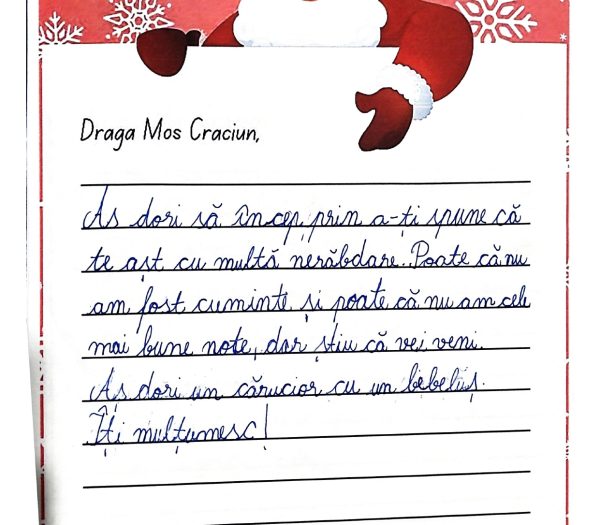 Draga Mos Craciun,
Aș dori să încep, prin a-ți spune că
te așt cu multă nerăbdare. Poate că nu
am fost cuminte și poate că nu am cele
mai bune note, dar știu că vei veni.
Aș dori un cărucior cu un bebeluș.
Îți mulțumesc!